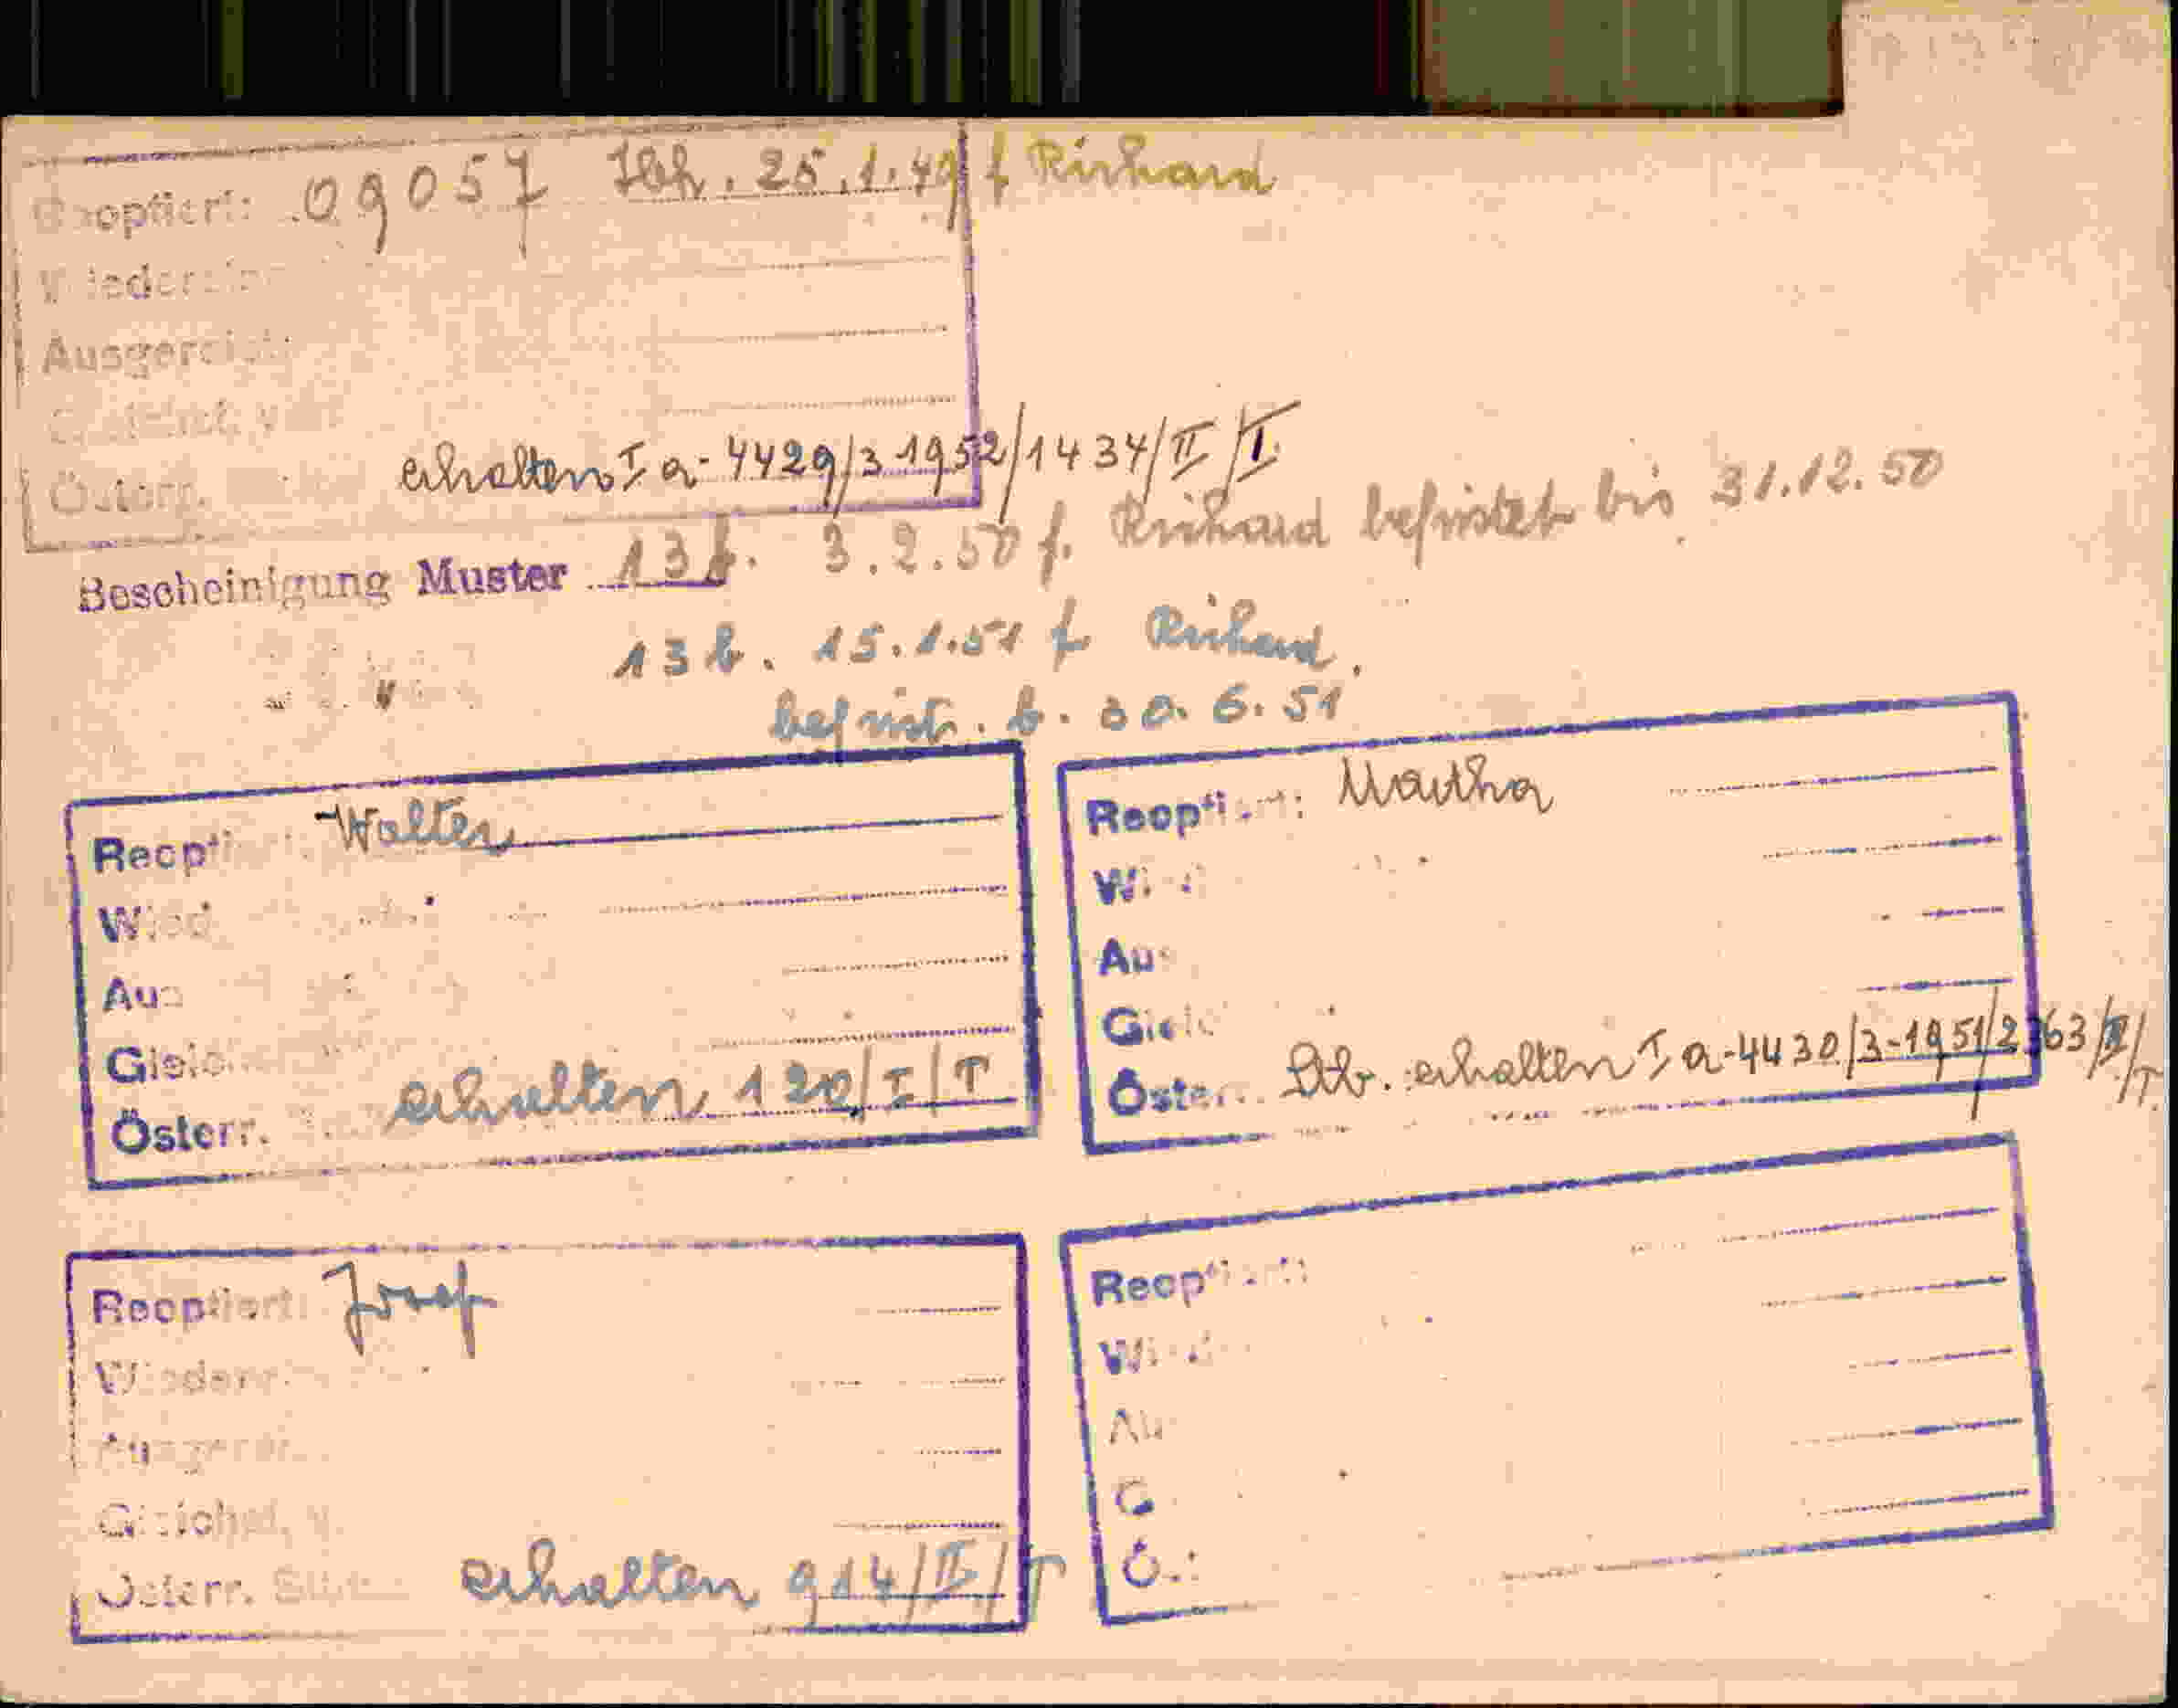 Reoptiert: 09057 Ibk. 25.1.49 f Richard
Ausgereist:
Österr. erhalten I a-4429/3-1952/1434/II/I
Bescheinigung Muster 13b. 3.2.50 f. Richard befristet bis 31.12.50
" 13 b. 15.1.51 f Richard.
befrist. b. 30.6.51
Reopti Walter
Wied
Aus
Gleich
Österr. erhalten 120/I/T
Reoptiert: Martha
Wi
Aus
Gleic
Österr. Stb. erhalten I a-4430/3-1951/2363/II/T.
Reoptiert: Josef
Wieder
Ausgerei
Gleichst. v.
Österr. erhalten 914/II/T
Reoptiert:
Wi
Au
G
Ö